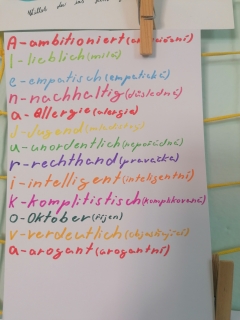 A-ambitioniert(ambiciózní)
l-lieblich(milá)
e-empatisch(empatická)
n-nachhaltig(důsledná)
a-allergie(alergie)
J-Jugend(mladistvý)
u-unordentlich(nepořádná)
r-rechthand(pravačka)
i-intelligent(inteligentní)
k-komplitistisch(komplikovaná)
o-Oktober(říjen)
v-verdeutlich
a-arogant(arogantní)